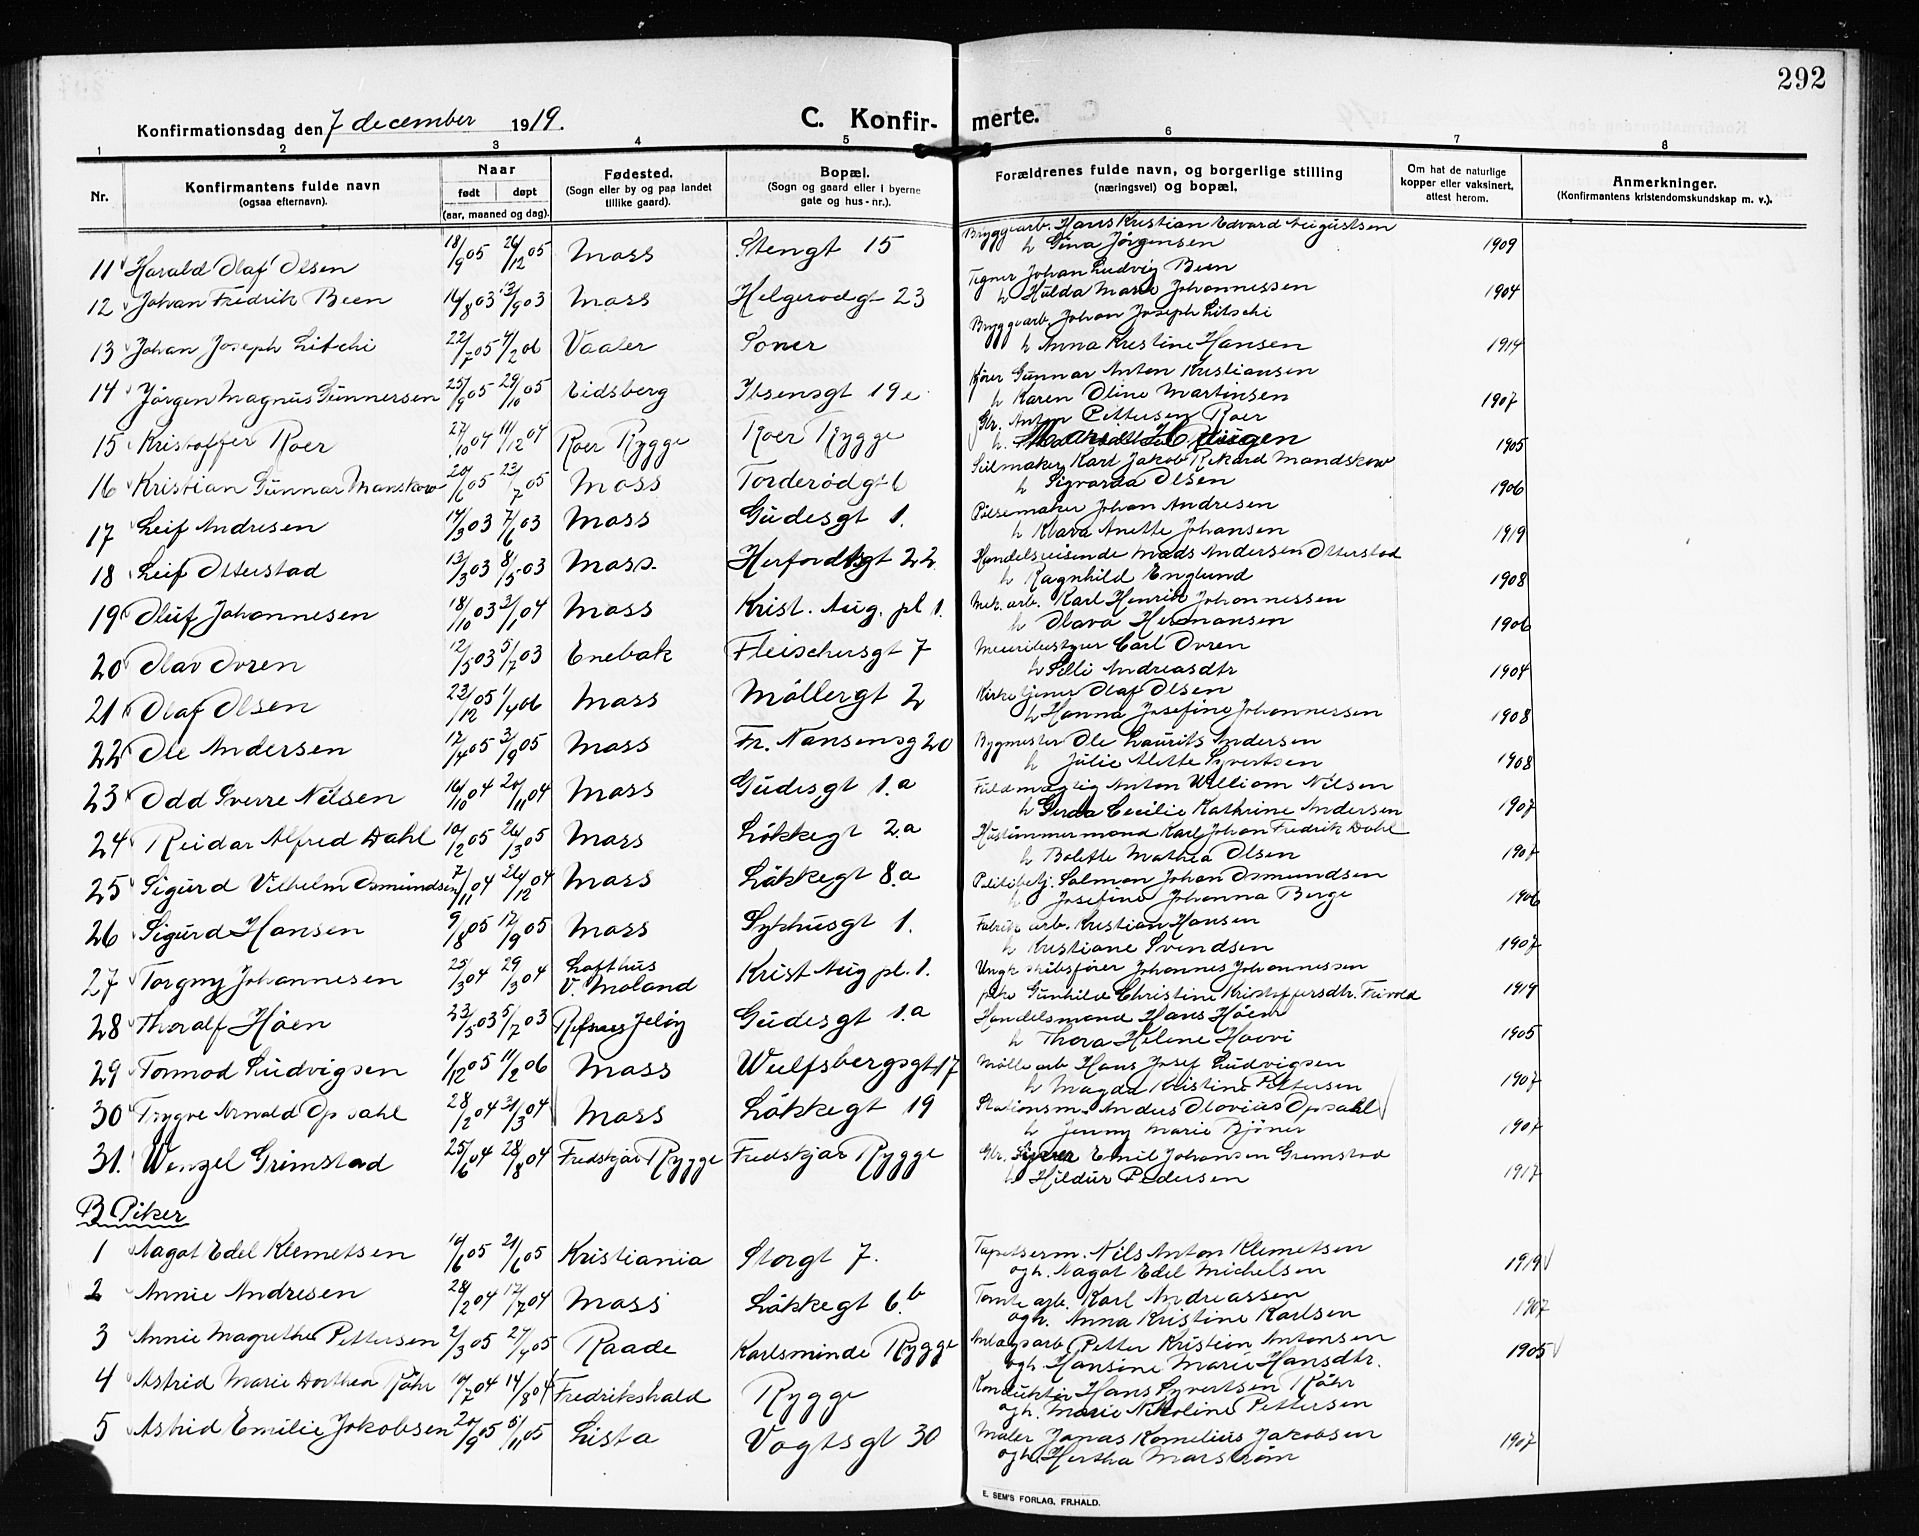 292
Konfirmationsdag den 7 december 1919.
C. Konfirmerte.
1 2 3 4 5 6 7 8
Nr.
Konfirmantens fulde navn
(ogsaa efternavn).
Naar
født døpt
(aar, maaned og dag).
Fødested.
(Sogn eller by og paa landet
tillike gaard).
Bopæl.
(Sogn og gaard eller i byerne
gate og hus-nr.).
Forældrenes fulde navn, og borgerlige stilling
(næringsvei) og bopæl.
Om hat de naturlige
kopper eller vaksinert,
attest herom.
Anmerkninger.
(Konfirmantens kristendomskundskap m. v.).
11 Harald Olaf Olsen 18/9 05 26/12 05 Moss Stengt 15 Bryggearb. Hans Kristian Edvard Augustsen
h Gina Jørgensen 1909
12 Johan Fredrik Been 16/8 03 13/9 03 Moss Helgerødgt 23 Tegner Johan Ludvig Been
h Hulda Marie Johannessen 1904
13 Johan Joseph Litschi 22/7 05 4/2 06 Vaaler Soner Bryggearb. Johan Joseph Litschi
h Anna Kristine Hansen 1914
14 Jørgen Magnus Gunnersen 25/9 05 29/10 05 Eidsberg Ibsensgt 19 e Kjører Gunnar Anton Kristiansen
h Karen Oline Martinsen 1907
15 Kristoffer Roer 27/10 04 11/12 04 Roer Rygge Roer Rygge Gbr. Anton Pettersen Roer
h. Haugen 1905
16 Kristian Gunnar Manskow 20/6 05 23/7 05 Moss Torderødgt 6 Seilmaker Karl Jakob Rikard Mandskow
h Sigvarda Olsen 1906
17 Leif Andresen 14/3 03 7/6 03 Moss Gudesgt 1. Pølsemaker Johan Andresen
h Klara Anette Johansen 1919
18 Leif Otterstad 13/3 03 8/5 03 Moss Herfordtsgt 22 Handelsreisende Mads Andersen Otterstad
h Ragnhild Englund 1908
19 Oluf Johannesen 18/10 03 3/1 04 Moss Krist. Aug. pl 1. Mek. arb. Karl Henrik Johannessen
h Olava Hermansen 1906
20 Olav Ovren 12/5 03 5/7 03 Enebak Fleischersgt 7 Meieribestyrer Carl Ovren
h Silli Andreasdtr 1904
21 Olaf Olsen 23/12 05 1/4 06 Moss Møllergt 2 Kirketjener Olaf Olsen
h Hanna Josefine Johannessen 1908
22 Ole Andersen 12/4 05 3/9 05 Moss Fr. Nansensg 20 Bygmester Ole Laurits Andersen
h Julie Alette Syvertsen 1908
23 Odd Sverre Nilsen 16/10 04 20/11 04 Moss Gudesgt 1.a Fuldmægtig Anton William Nilsen
h Gerda Cecilie Kathrine Andersen 1907
24 Reidar Alfred Dahl 10/2 05 26/3 05 Moss Løkkegt 2.a Hustømmermand Karl Johan Fredrik Dahl
h Bolette Mathea Olsen 1907
25 Sigurd Vilhelm Osmundsen 7/11 04 26/12 04 Moss Løkkegt 8.a Politibetj. Salmon Johan Osmundsen
h Josefine Johanna Berge 1906
26 Sigurd Hansen 9/8 05 17/9 05 Moss Sykhusgt 1. Fabrik arb. Kristian Hansen
h Kristiane Svendsen 1907
27 Torgny Johannesen 25/3 04 29/3 04 Lofthus
V. Moland Krist Aug pl. 1. Ungk. skibsfører Johannes Johannessen
pike Gunhilde Christine Kristoffersdtr. Feivold 1919
28 Thoralf Høen 23/5 03 5/7 03 Refsnes Jeløy Gudesgt 1.a Handelsmand Hans Høen
h Thora Helene Hoovi 1905
29 Tormod Ludvigsen 1/12 05 11/2 06 Moss Wulfsbergsgt 17 Møllearb Hans Josef Ludvigsen
h Magda Kristine Pettersen 1907
30 Trygve Arnold Opsahl 28/2 04 31/3 04 Moss Løkkegt 19 Stationsm. Anders Olovius Opsahl
h Jenny Marie Bjøner 1907
31. Wenzel Grimstad 25/6 04 28/8 04 Fredskjær Rygge Fredskjær Rygge Gbr. Emil Johansen Grimstad
h Hildur Pedersen 1917
B Piker
1 Aagot Edel Klemetsen 10/6 05 21/6 05 Kristiania Storgt 7. Tapetserm. Nils Anton Klemetsen
ogh. Aagot Edel Michelsen 1919
2 Annie Andresen 28/2 04 17/7 04 Moss Løkkegt 6.b Tomtearb. Karl Andreassen
ogh. Anna Kristine Karlsen 1907
3 Annie Magrethe Pettersen 2/3 05 27/4 05 Raade Karlsminde Rygge Anlægsarb Petter Kristian Antonsen
ogh Hansine Marie Hansdtr. 1905
4 Astrid Marie Dorthea Røhr 10/7 04 14/8 04 Fredrikshald Rygge Konduktør Hans Syvertsen Røhr
ogh. Marie Nikoline Pettersen
5 Astrid Emilie Jokobsen 20/9 05 5/11 05 Lista Vogtsgt 30 Maler Jonas Kornelius Jakobsen
ogh Hertha Marstrøm 1907
E. SEM'S FORLAG, FR.HALD.